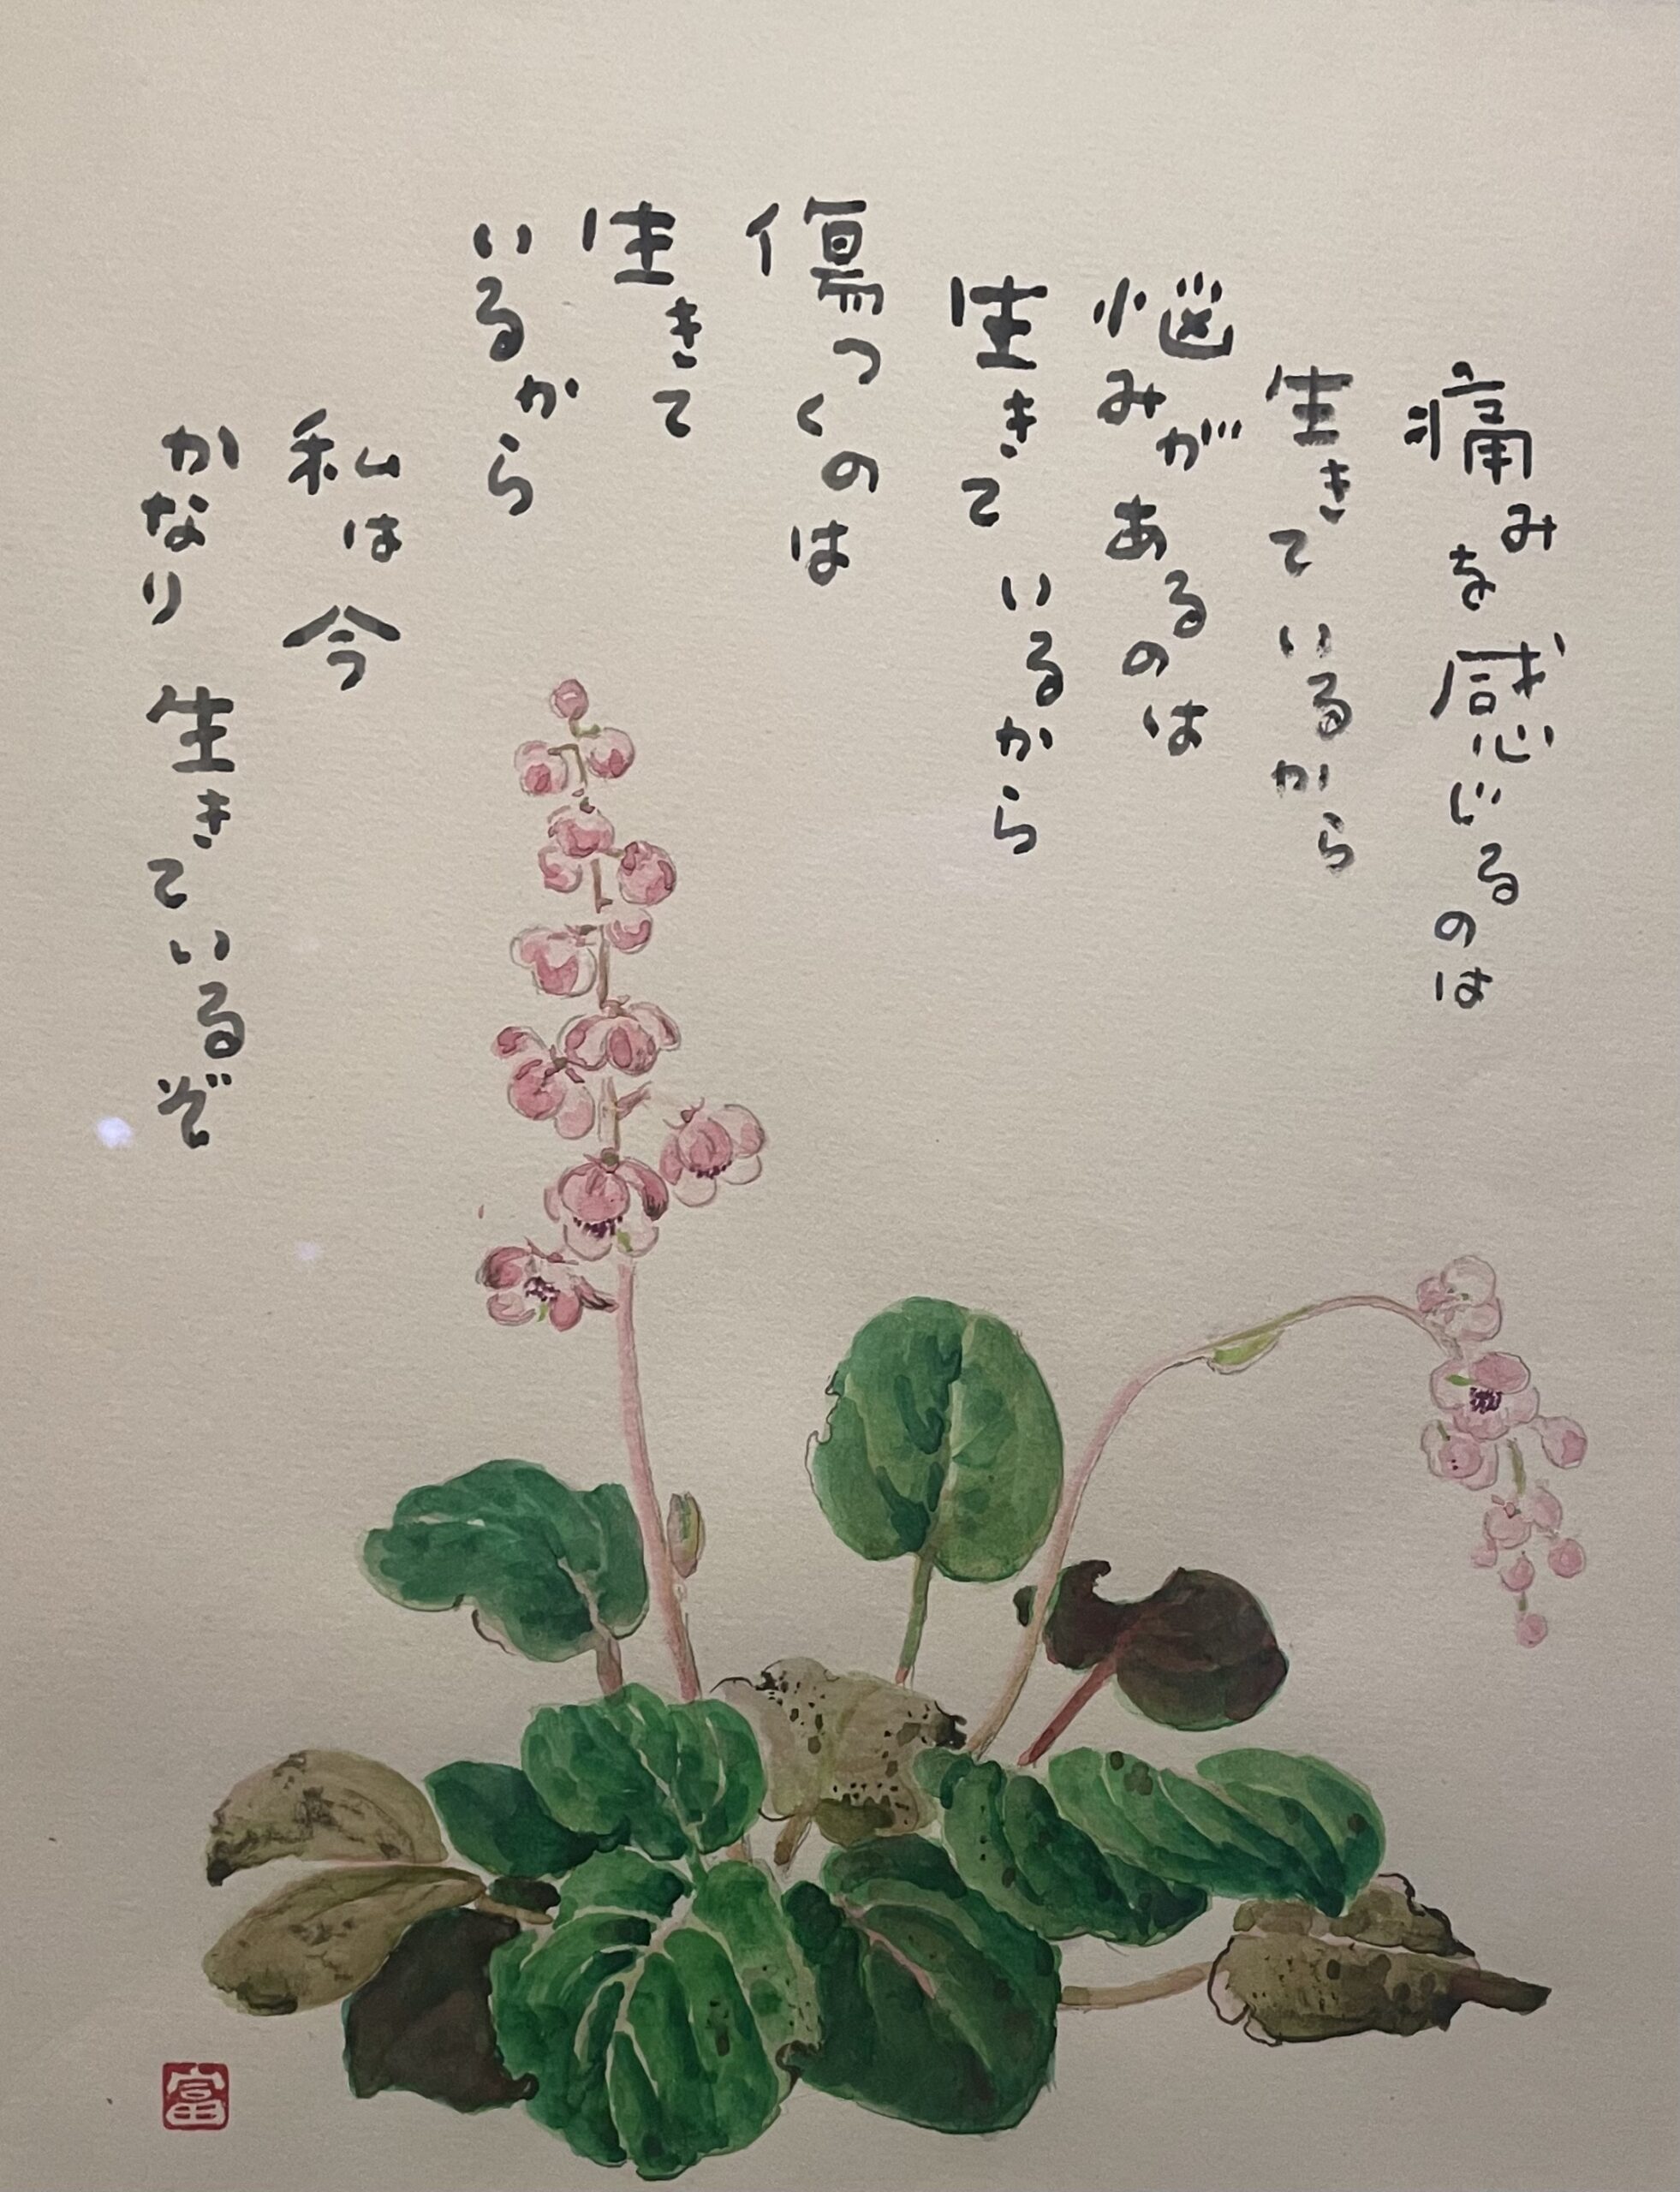 痛みを感じるのは
生きているから
悩みがあるのは
生きているから
傷つくのは
生きて
いるから
私は今
かなり生きているぞ
富